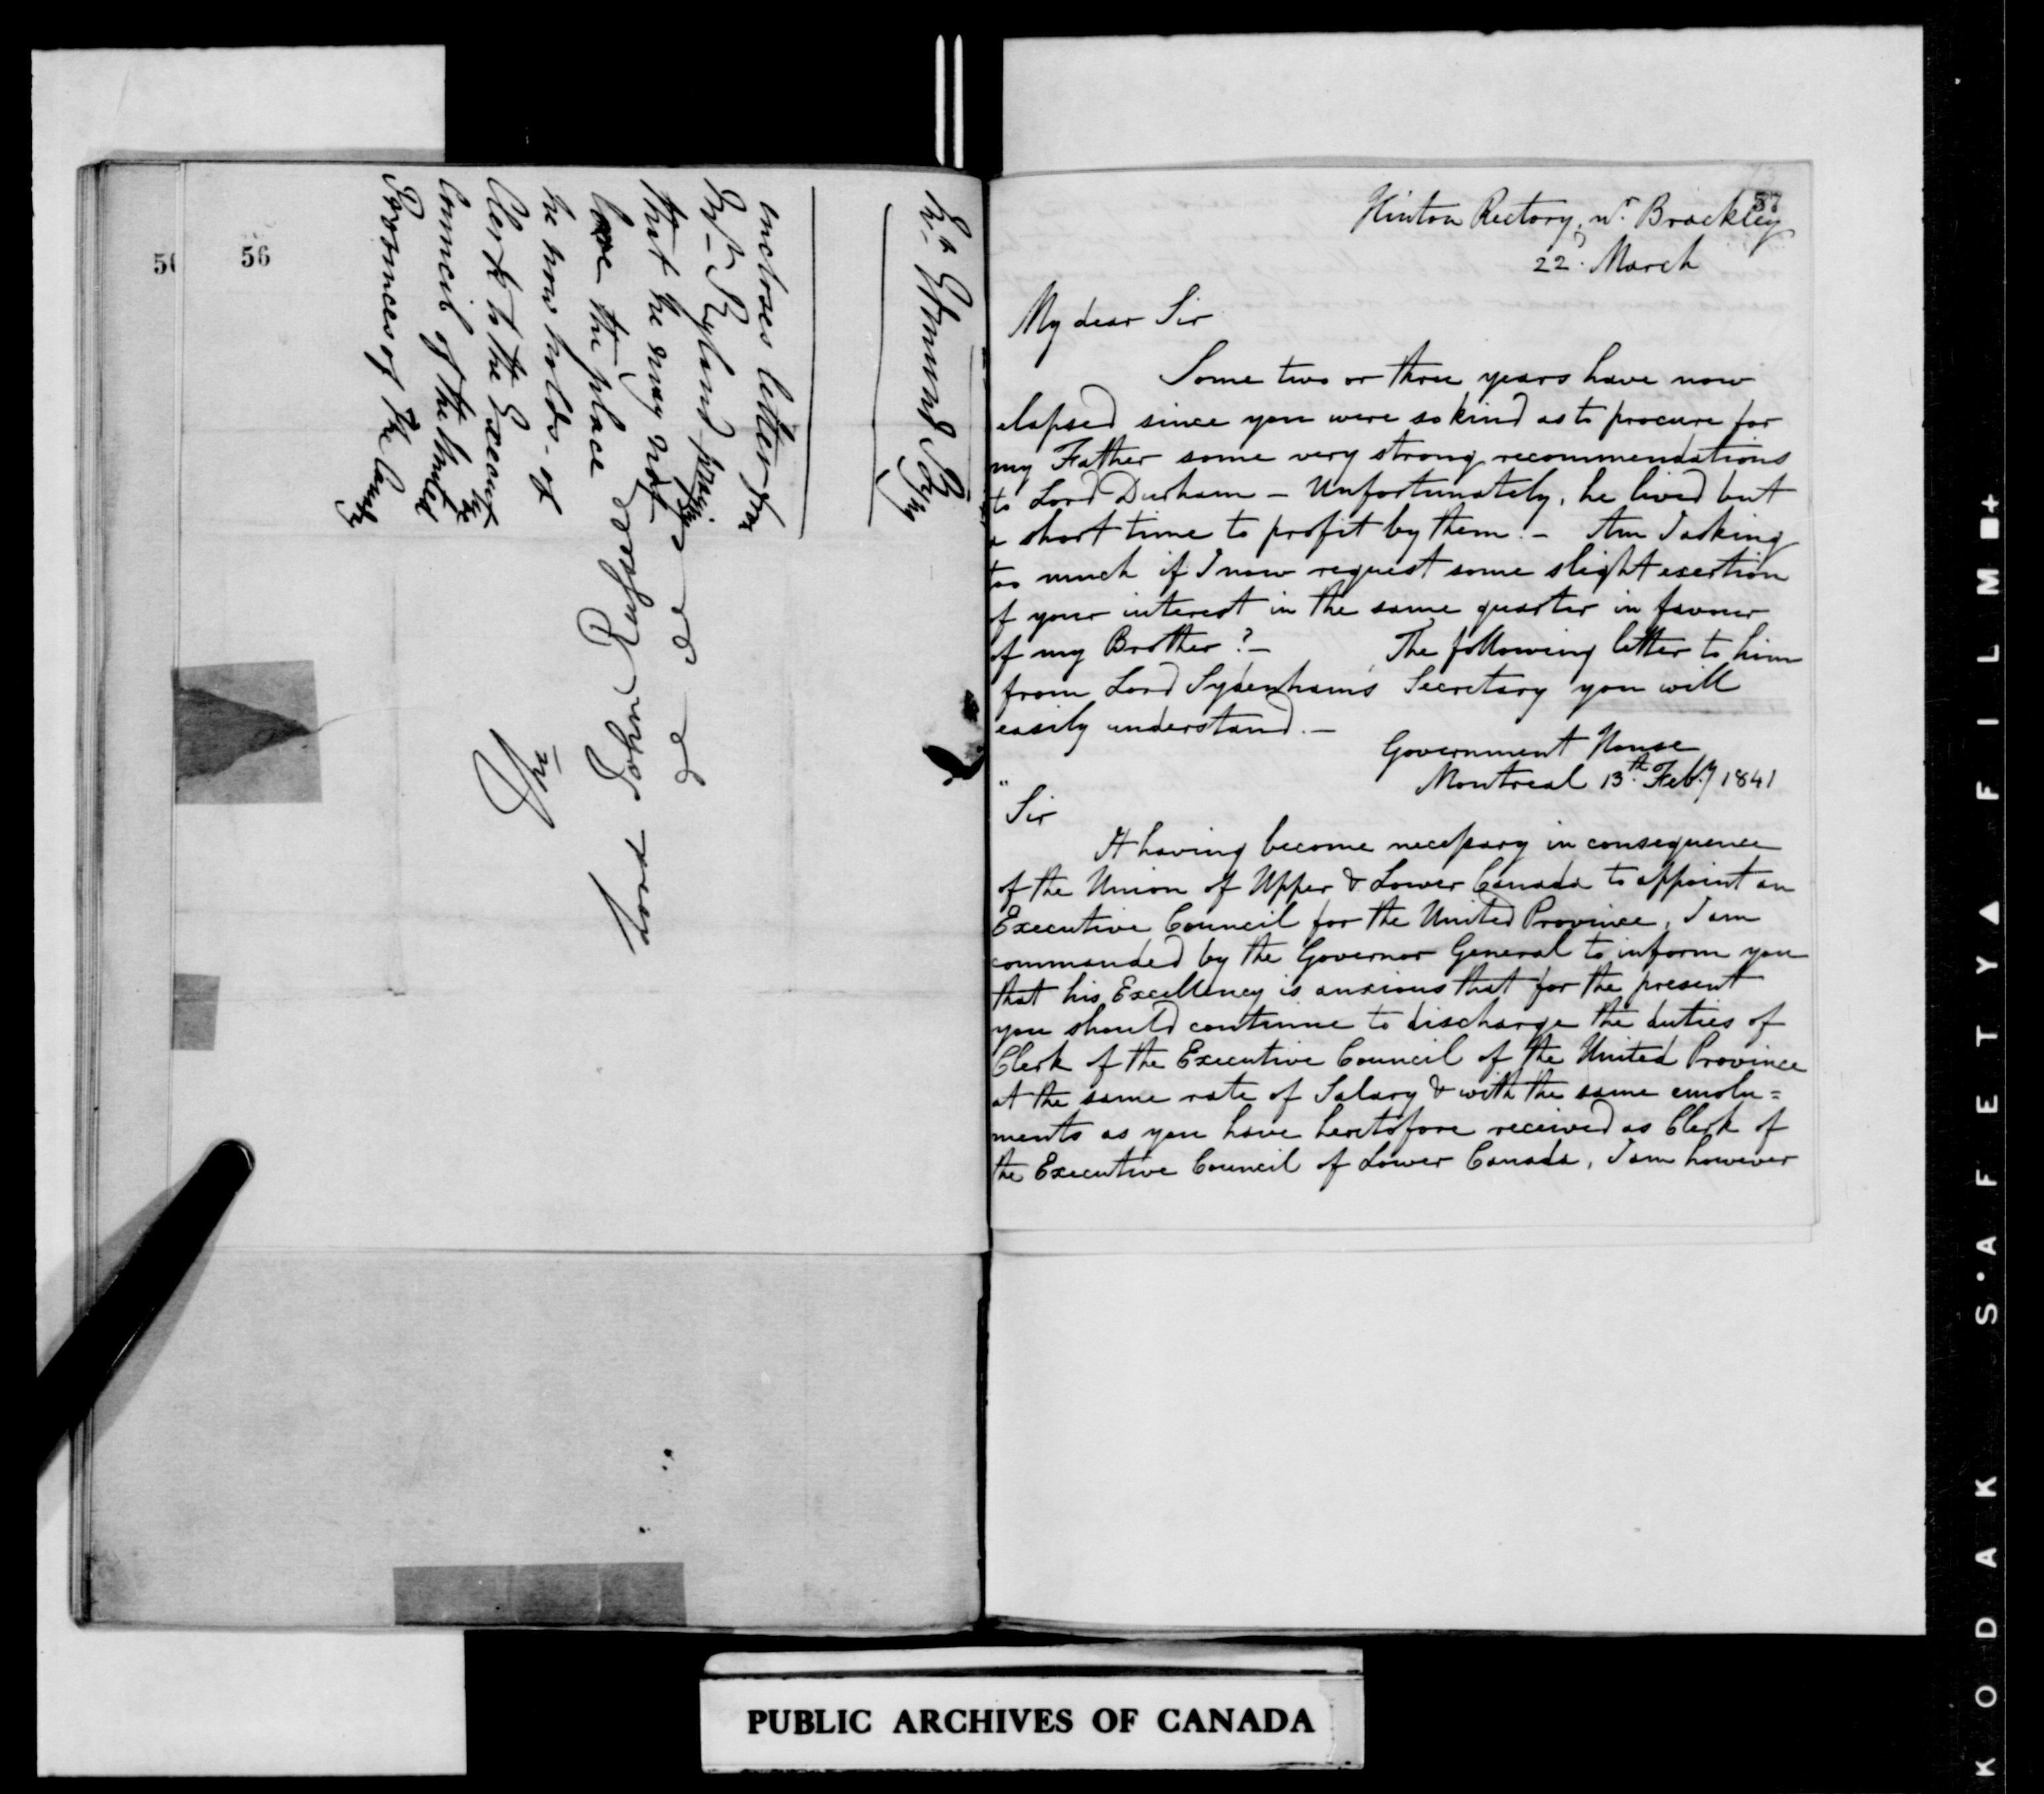 56
Rt. Edmund
encloses letter from
Mr. Ryland praying
that he may not
lose the place
he now holds of
Clerk to the Executive
Council of the United
Provinces of the Canadas
Lord John Russell
57
Hinton Rectory, nr. Brackley
22d. March
My dear Sir
Some two or three years have now
elapsed since you were so kind as to procure for
my Father some very strong recommendations
to Lord Durham – Unfortunately, he lived but
a short time to profit by them. – Am I asking
too much if I now request some slight exertion
of your interest in the same quarter in favour
of my Brother? – The following letter to him
from Lord Sydenham's Secretary you will
easily understand. –
Government House
Montreal 13th. Feby 1841
"Sir
It having become necessary in consequence
of the Union of Upper & Lower Canada to appoint an
Executive Council for the United Province, I am
commanded by the Governor General to inform you
that his Excellency is anxious that for the present
you should continue to discharge the duties of
Clerk of the Executive Council of the United Province
at the same rate of Salary & with the same emolu=
ments as you have heretofore received as Clerk of
the Executive Council of Lower Canada, I am however
PUBLIC ARCHIVES OF CANADA
KODAK S·A·F·E·T·Y▲FILM■+